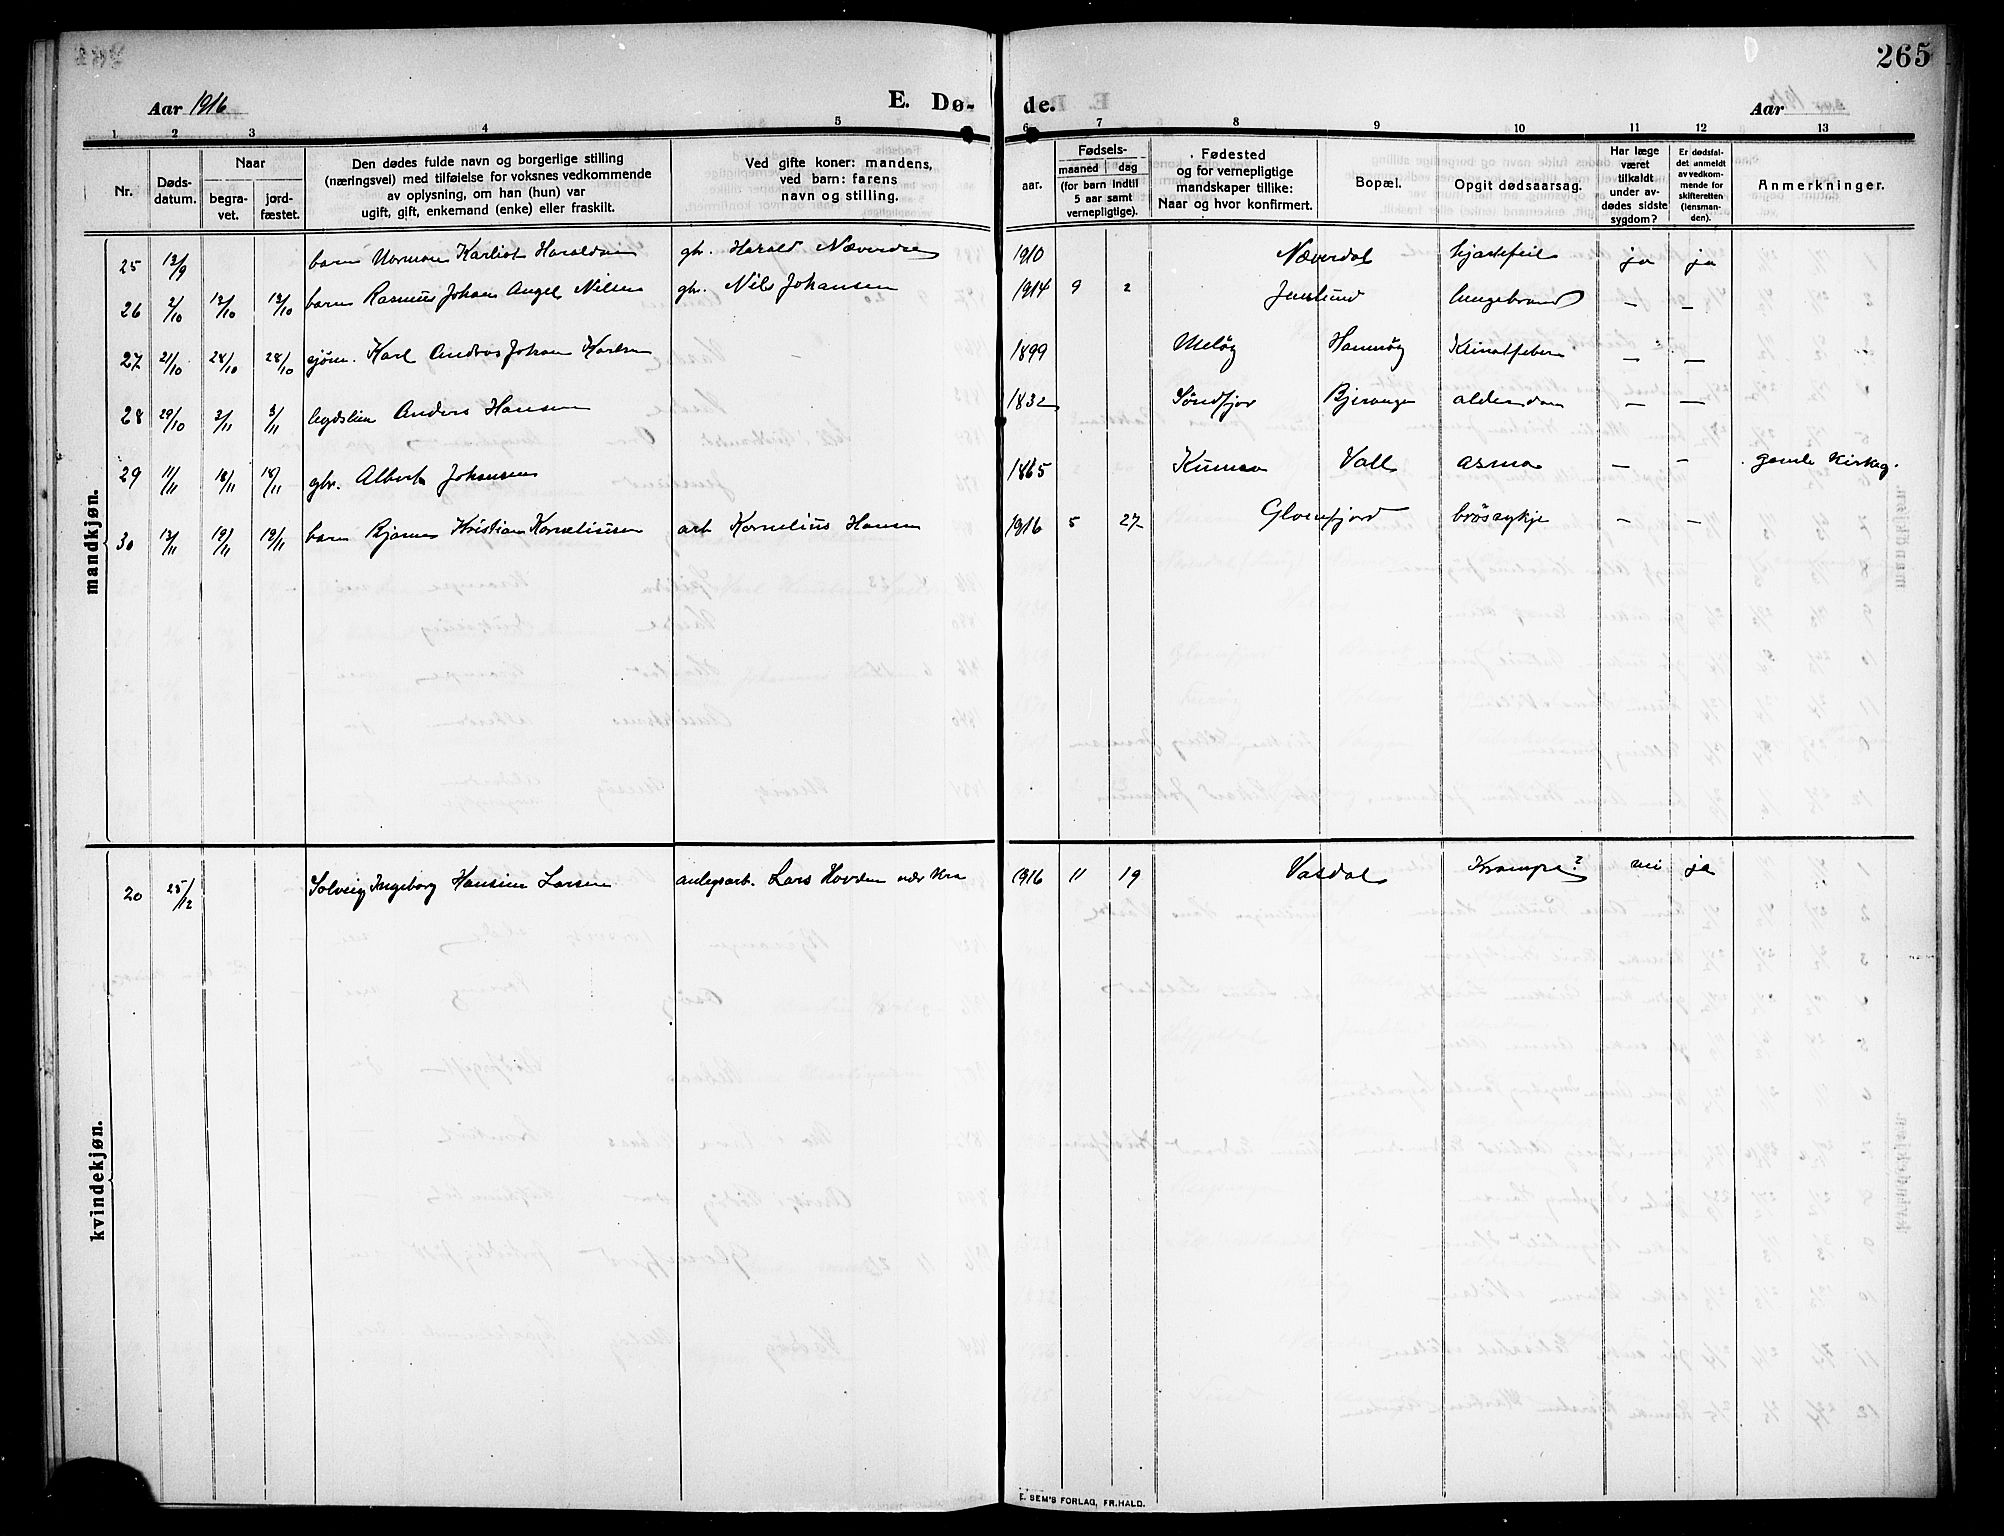 265
Aar 1916
E. Dø-
de.
Aar
1 2 3 4 5 6 7 8 9 10 11 12 13
Nr.
Døds-
datum.
Naar
begra-
vet.
jord-
fæstet.
Den dødes fulde navn og borgerlige stilling
(næringsvei) med tilføielse for voksnes vedkommende
av oplysning, om han (hun) var
ugift, gift, enkemand (enke) eller fraskilt.
Ved gifte koner: mandens,
ved barn: farens
navn og stilling.
aar.
Fødsels-
maaned dag
(for barn indtil
5 aar samt
vernepligtige).
Fødested
og for vernepligtige
mandskaper tillike:
Naar og hvor konfirmert.
Bopæl.
Opgit dødsaarsag.
Har læge
været
tilkaldt
under av-
dødes sidste
sygdom?
Er dødsfal-
det anmeldt
av vedkom-
mende for
skifteretten
(lensman-
den).
Anmerkninger.
mandkjøn.
25 13/9 barn Haraldsen gbr. Harald Næverdal 1910 Næverdal hjertefeil ja ja
26 2/10 12/10 12/10 barn Rasmus Johan Angel Nilsen gbr. Nils Johansen 1914 9 2 Jenslund lungebrand — —
27 21/10 28/10 28/10 sjøm. Karl Andreas Johan Karlsen — 1899 Meløy — —
28 29/10 3/11 3/11 legdslem Anders Hansen 1832 Søndfjor Bjerangen alderdom — —
29 11/11 18/11 18/11 gbr. Albert Johansen 1865 Vall asma — — gamle kirkeg.
30 13/11 19/11 19/11 barn Bjarne Kristian Korneliussen arb. Kornelius Hansen 1916 5 27 Glomfjord brøstsykje — —
kvindekjøn.
20 25/12 Solveig Ingeborg Hansine Larsen anlegsarb. Lars Hovden nær Kra 1916 11 19 Vasdal Krampe? nei ja
E. SEM'S FORLAG, FR.HALD.